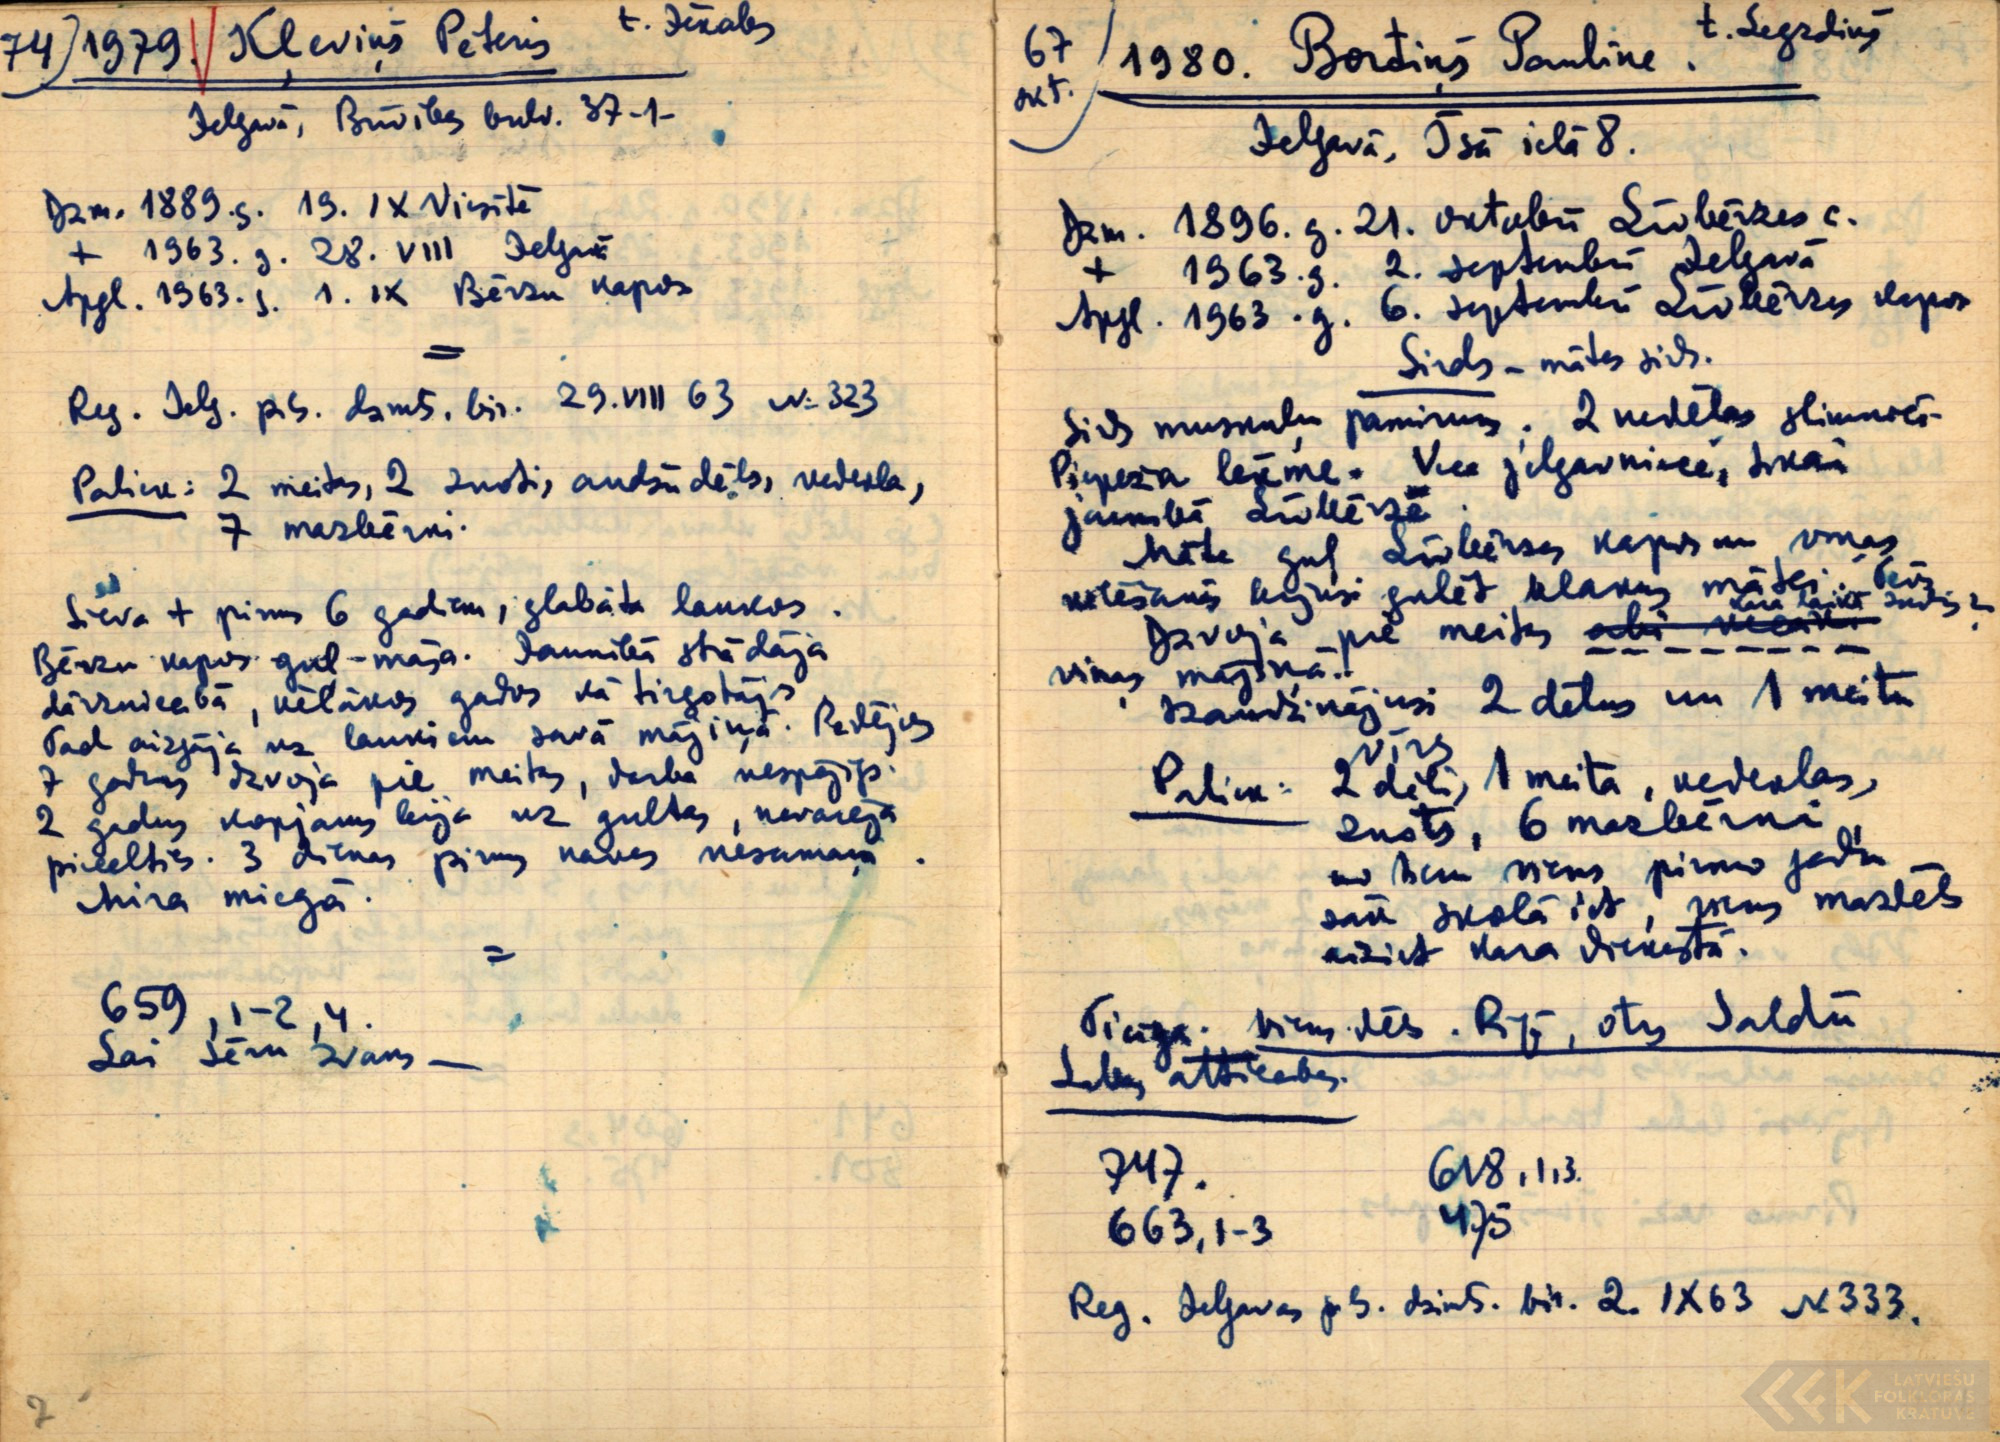 74) 1979. Kļaviņš Pēteris t. Jēkabs
Jelgavā, Brīvības bulv. 37-1-
Dzm. 1889.g. 19. IX Viesītē
+ 1963. g. 28. VIII Jelgavā
Apgl. 1963. g. 1. IX Bērzu kapos
=
Reg. Jelg. pils. dzimts. bir. 29.VIII 63 № 323
Paliek: 2 meitas, 2 znoti, audžudēls, vedekla,
7 mazbērni.
Sieva + pirms 6 gadiem, glabāta laukos.
Bērzu kapos guļ - māsa. Jaunībā strādāja
dārzniecībā, vēlākos gados kā tirgotājs
Tad aizgāja uz laukiem savā mājiņā. Pēdējos
7 gadus dzīvoja pie meitas, darba nespējīgs.
2 gadus kopjams bija uz gultas, nevarēja
piecelties. 3 dienas pirms nāves nesamaņā.
Mira miegā.
=
659, 1-2, 4.
Lai sēru zvans —
7
67 skt. 1980. Bordiņš Paulīne. t. Legzdiņš
Jelgavā, Īsā ielā 8.
Dzm. 1896. g. 21. oktobrī Līvbērzes c.
+ 1963.g. 2. septembrī Jelgavā
Apgl. 1963.g. 6. septembrī Līvbērzes kapos
Sirds - mātes sirds.
Sirds muskuļu pamirums. 2 nedēļas slimnīcā
Piepeša lēkme. Veca jelgavniece,
jaunībā Līvbērzē.
Māte guļ Līvbērzes kapos un viņas
vēlēšanās bijusi gulēt blakus mātei. Tēvs
kara laikā zudis?
Dzīvoja pie meitas
viņas mājiņā.
Izaudzinājusi 2 dēlus un 1 meitu
vīrs
Paliek: 2 dēli, 1 meita, vedeklas,
znots, 6 mazbērni,
no tiem viens pirmo gadu
sāk skolā iet, viens mazdēls
aiziet kara dienestā.
Ticīga. Viens dēls. Rīgā, otrs Saldū
Labas attiecības.
747. 618, 1, 3.
663, 1-3 475
Reg. Jelgavas pils. dzimts. bir. 2. IX 63 № 333.
LATVIEŠU
FOLKLORAS
KRĀTUVE